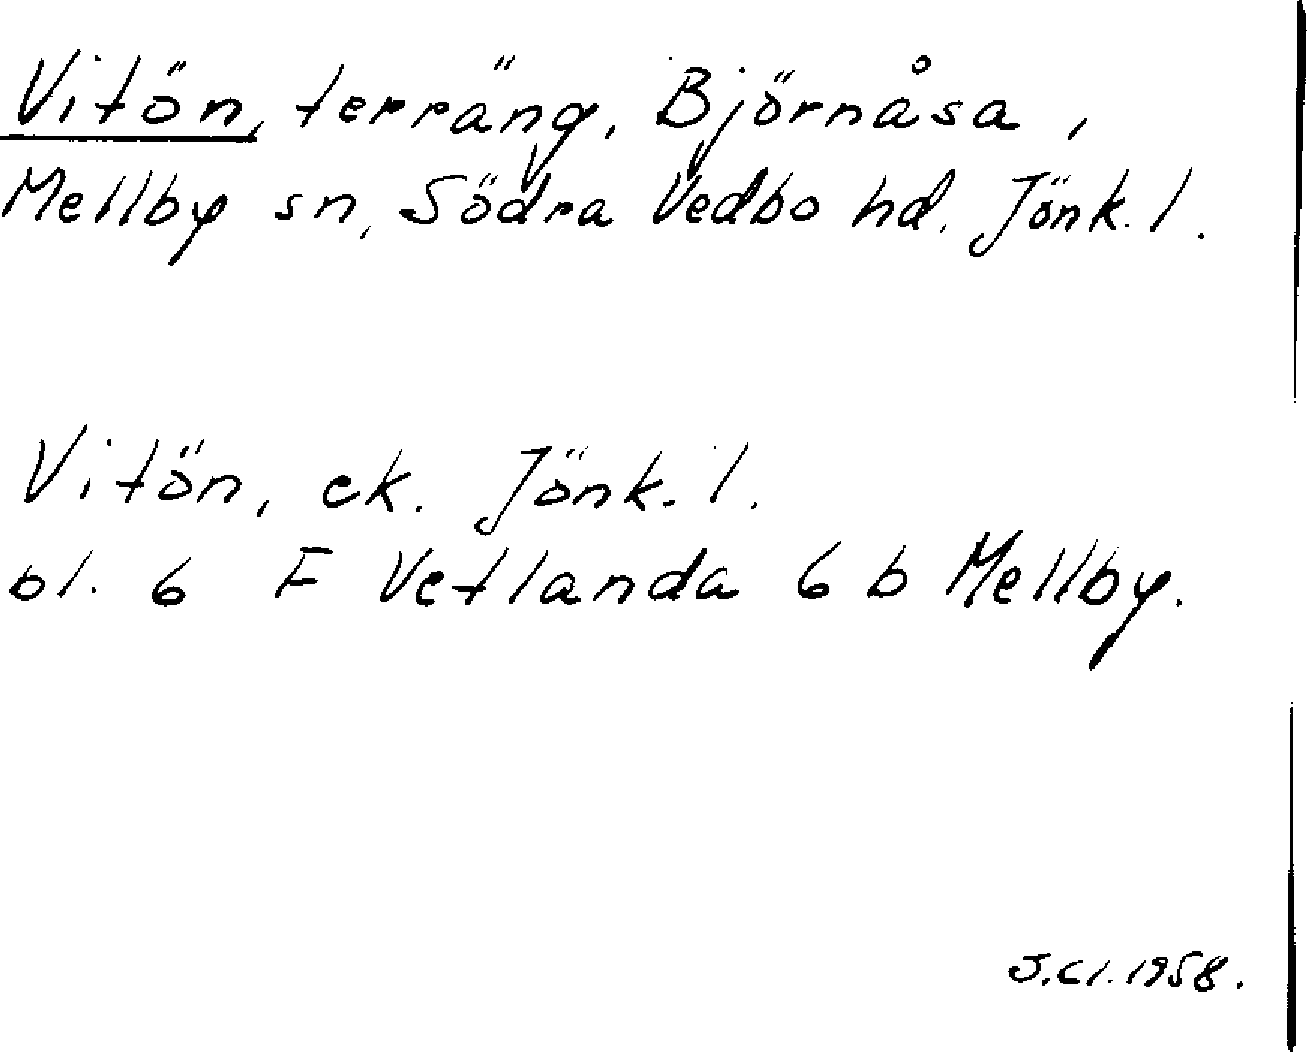 Vitön, terräng, Björnåsa,
Mellby sn, Södra Vedbo hd. Jönk. l.
Vitön, ek. Jönk. l.
bl. 6 F Vetlanda 6 b Mellby.
J.Cl. 1958.